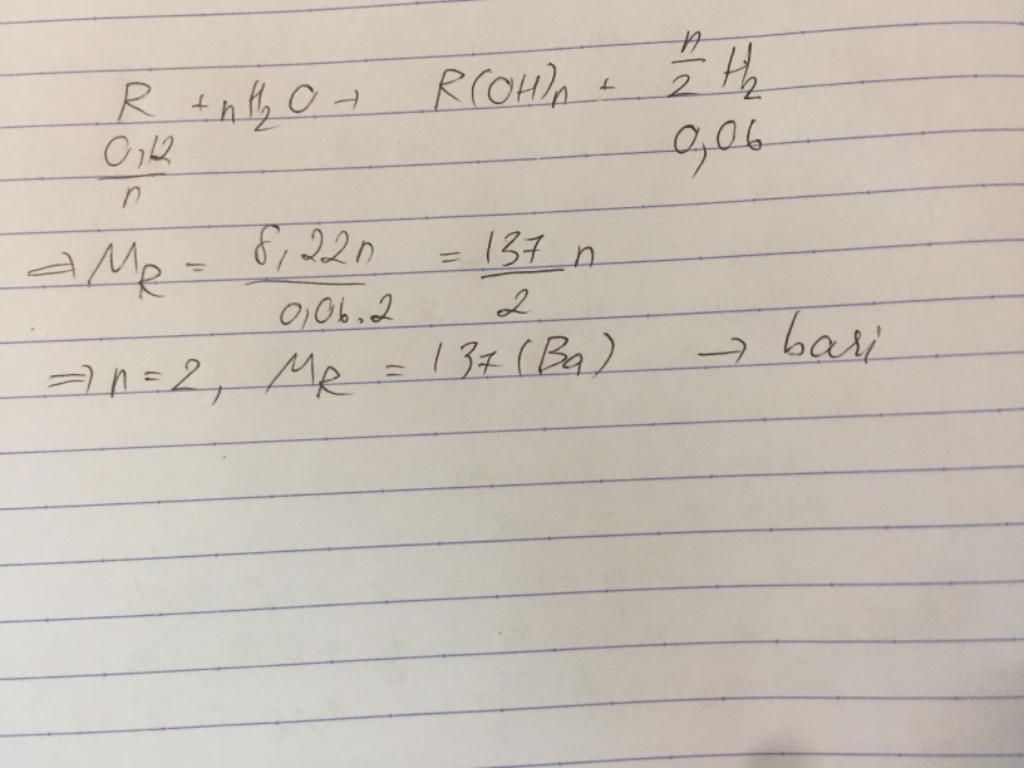 R + nH₂O → R(OH)n + n/2 H₂
0,12/n 0,06
⇒ M_R = 8,22n/0,06.2 = 137/2 n
⇒ n = 2, M_R = 137 (Ba) → bari